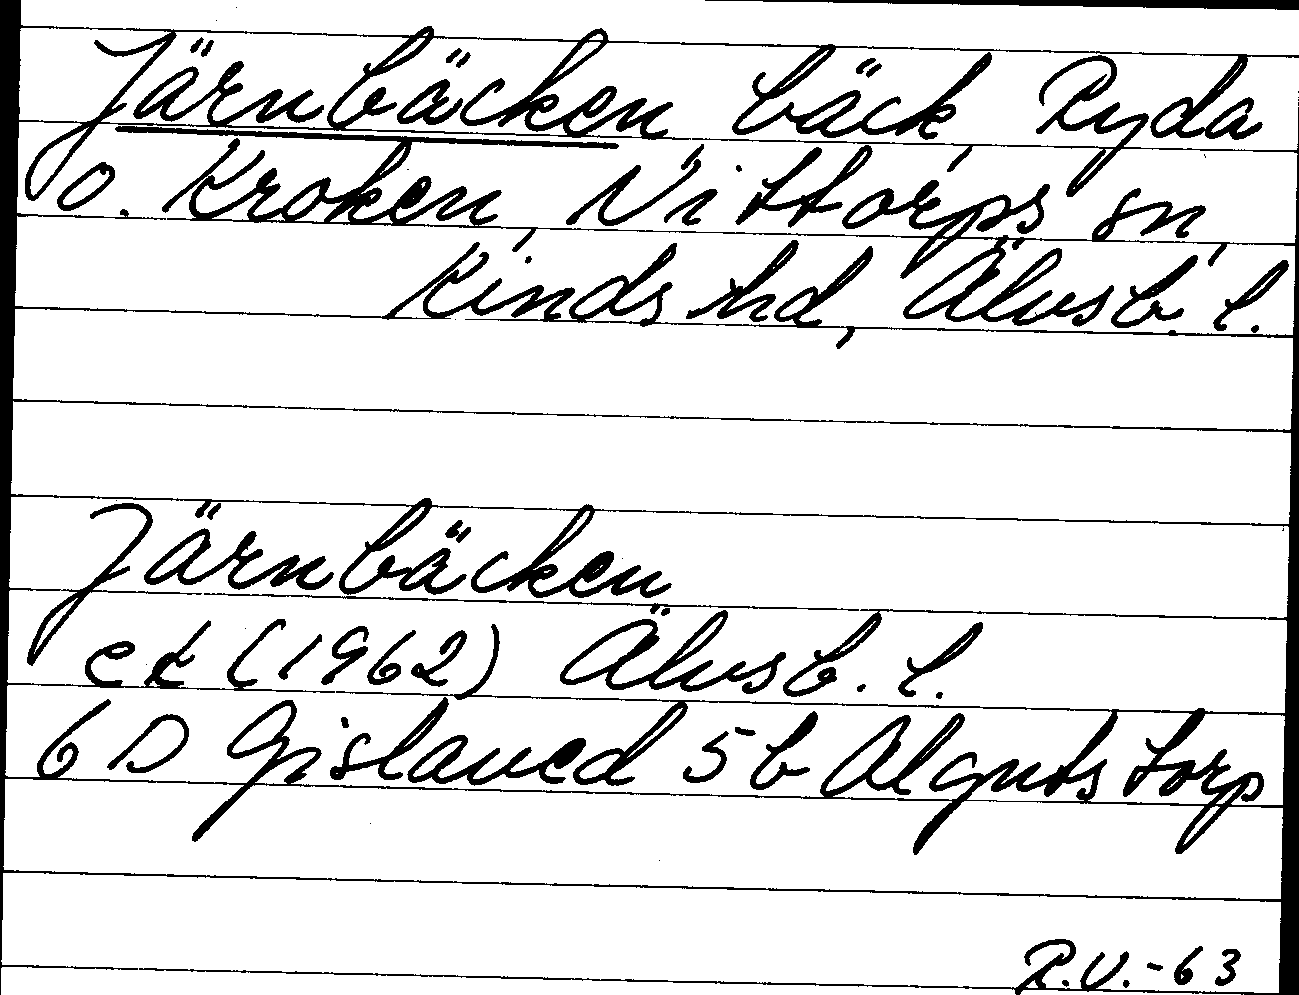 Järnbäcken, bäck, Ryda
o. Kroken, Nittorps sn,
Kinds hd, Älvsb. l.
Järnbäcken
ek (1962) Älvsb. l.
6 D Gislaved 5 b Algutstorp
R.V.-63